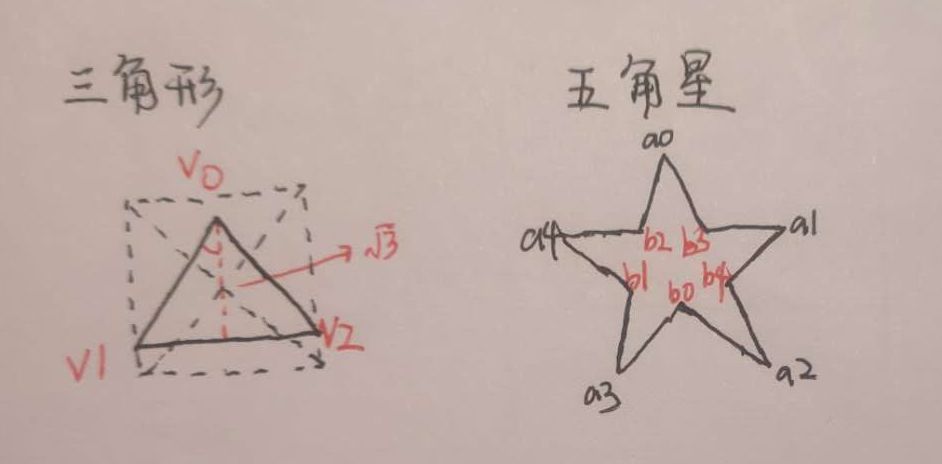 三角形
V0
√3
V1
V2
五角星
a0
a4
b2
b3
a1
b1
b0
b4
a3
a2